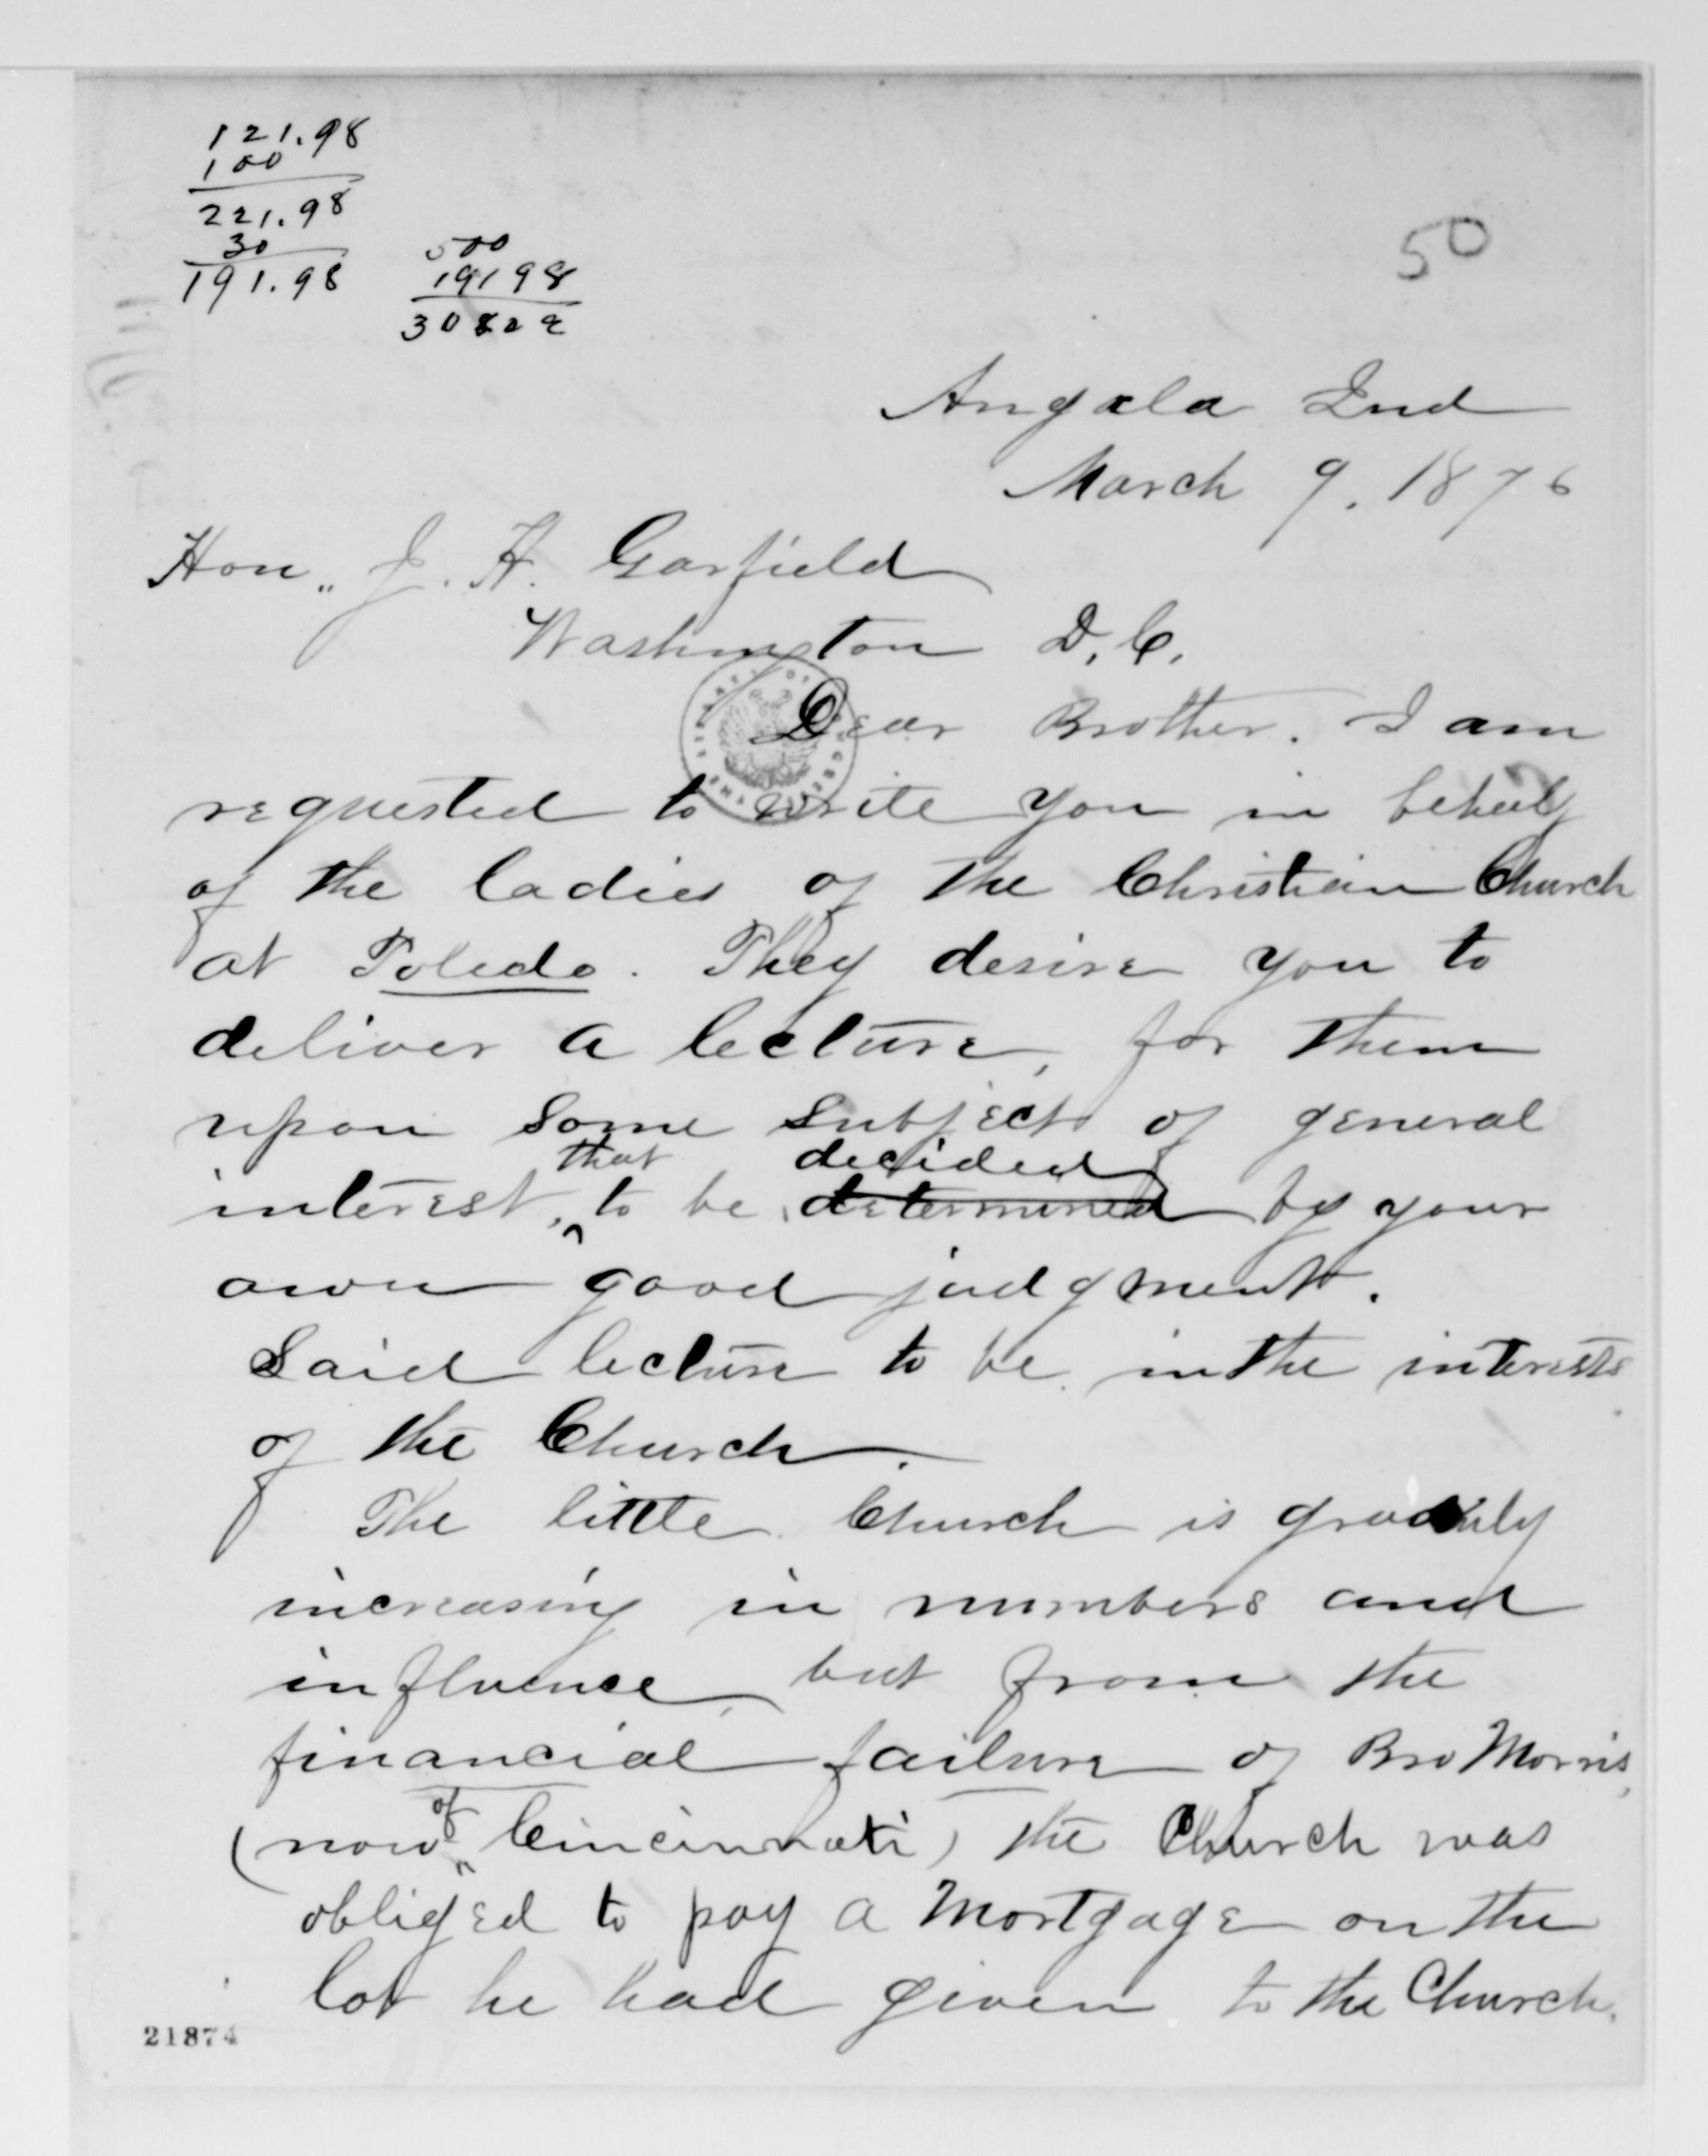 121.98
100
221.98
30
191.98
500
19198
30822
50
Angola Ind
March 9. 1876
Hon. J. H. Garfield
Washington D.C.
Dear Brother. I am
requested to write you in behalf
of the ladies of the Christian Church
at Toledo. They desire you to
deliver a lecture, for them
upon some subject of general
that decided
interest, to be determined by your
own good judgment.
Said lecture to be in the interests
of the Church.
The little Church is gradualy
increasing in numbers and
influence, but from the
financial failure of Bro Morris,
(now of Cincinnati) the Church was
obliged to pay a Mortgage on the
lot he had given to the Church.
21874